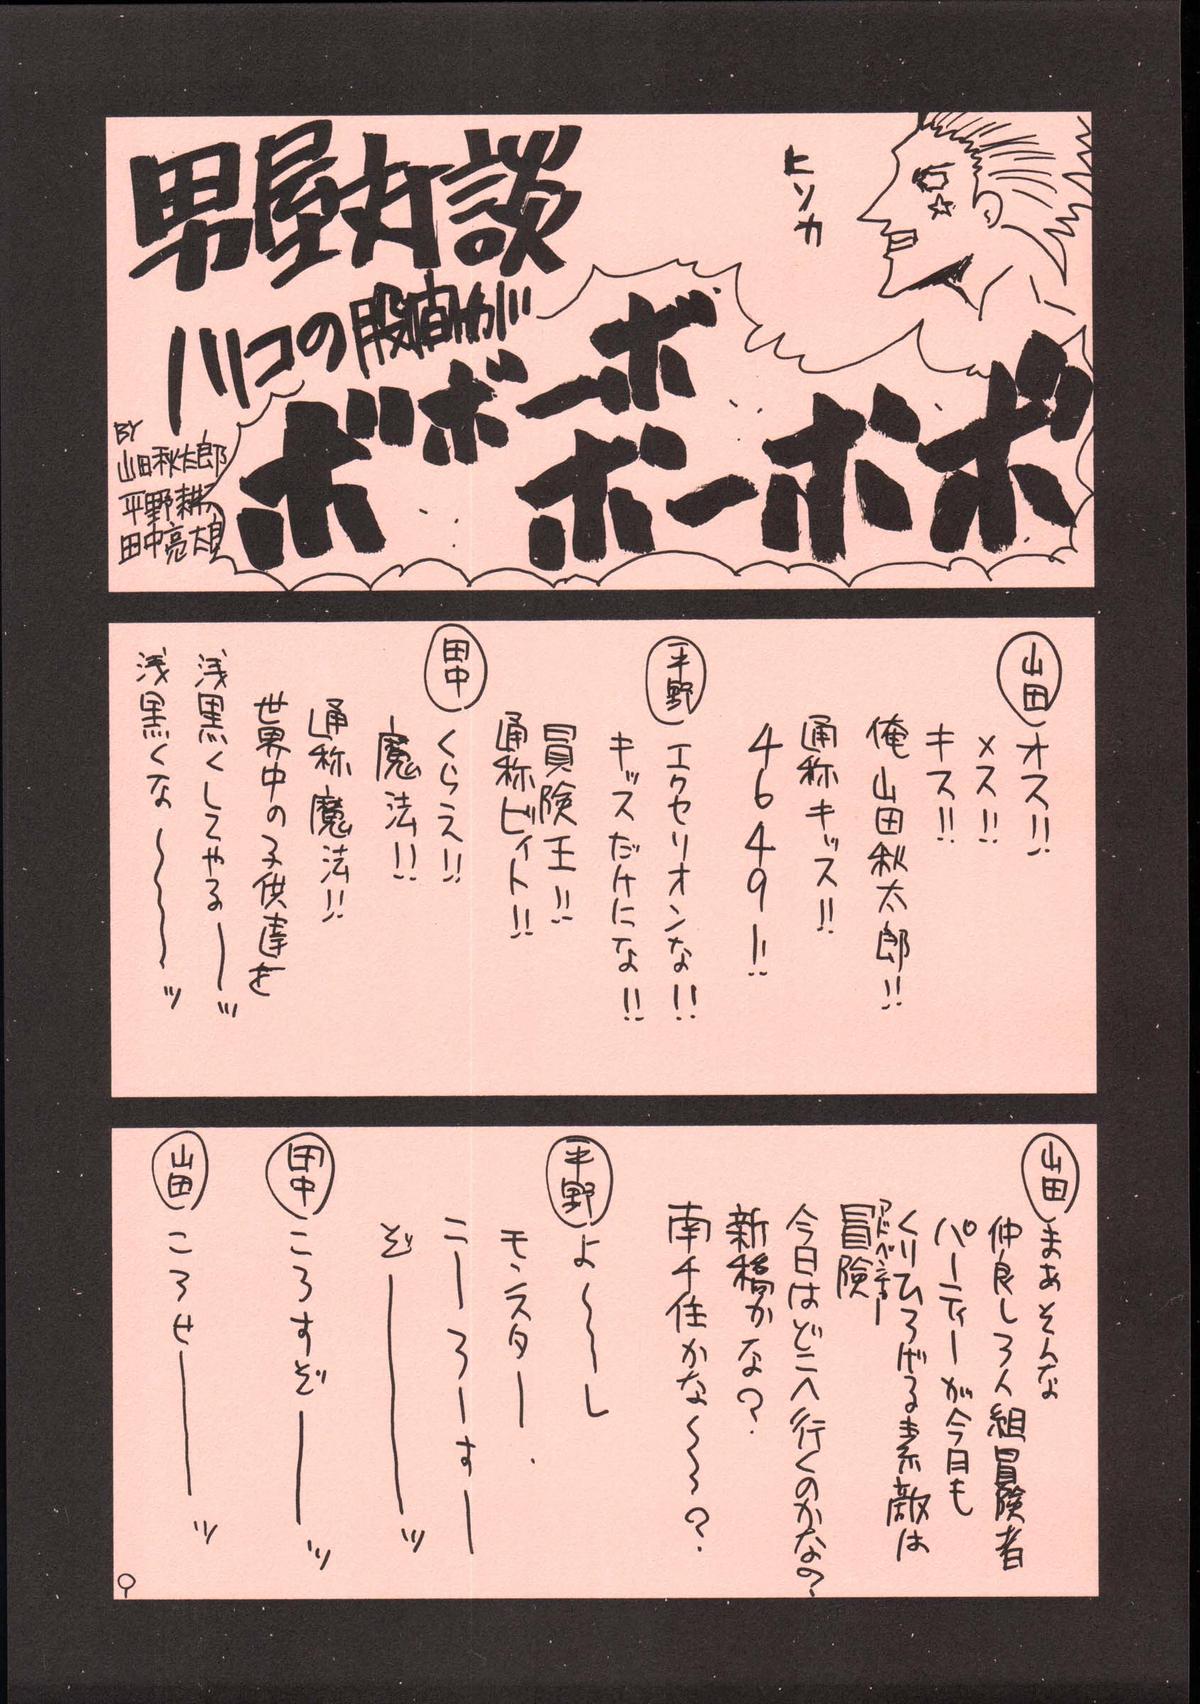 男屋対談
ハリコの股間が
ボボボーボ
ボーボボ
ヒソカ
BY
山田秋太郎
平野耕太
田中亮太
山田
オス!!
メス!!
キス!!
俺山田秋太郎!!
通称キッス!!
4649ー!!
平野
エクセリオンな!!
キッスだけにな!!
冒険王!!
通称ビィト!!
田中
くらえ!!
魔法!!
通称魔法!!
世界中の子供達を
浅黒くしてやるーーッ
浅黒くな〜〜〜ッ
山田
まあそんな
仲良し3人組冒険者
パーティーが今日も
くりひろげる素敵は
冒険
アドベンチャー
今日はどこへ行くのかな?
新橋かな?
南千住かな〜〜?
平野
よ〜〜し
モンスター
こーろーすー
ぞーーーッ
田中
ころすぞーーッ
山田
ころせーーーッ